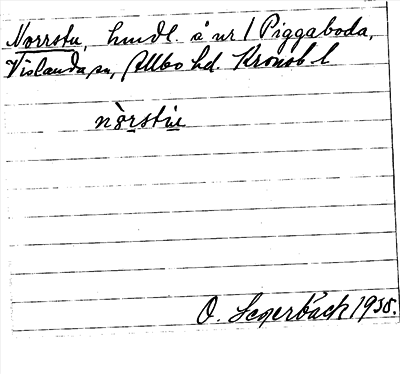 Norrstu, hmdl å nr 1 Piggaboda,
Vislanda sn, Allbo hd. Kronob l
nòrstu
O. Segerbäck 1935.